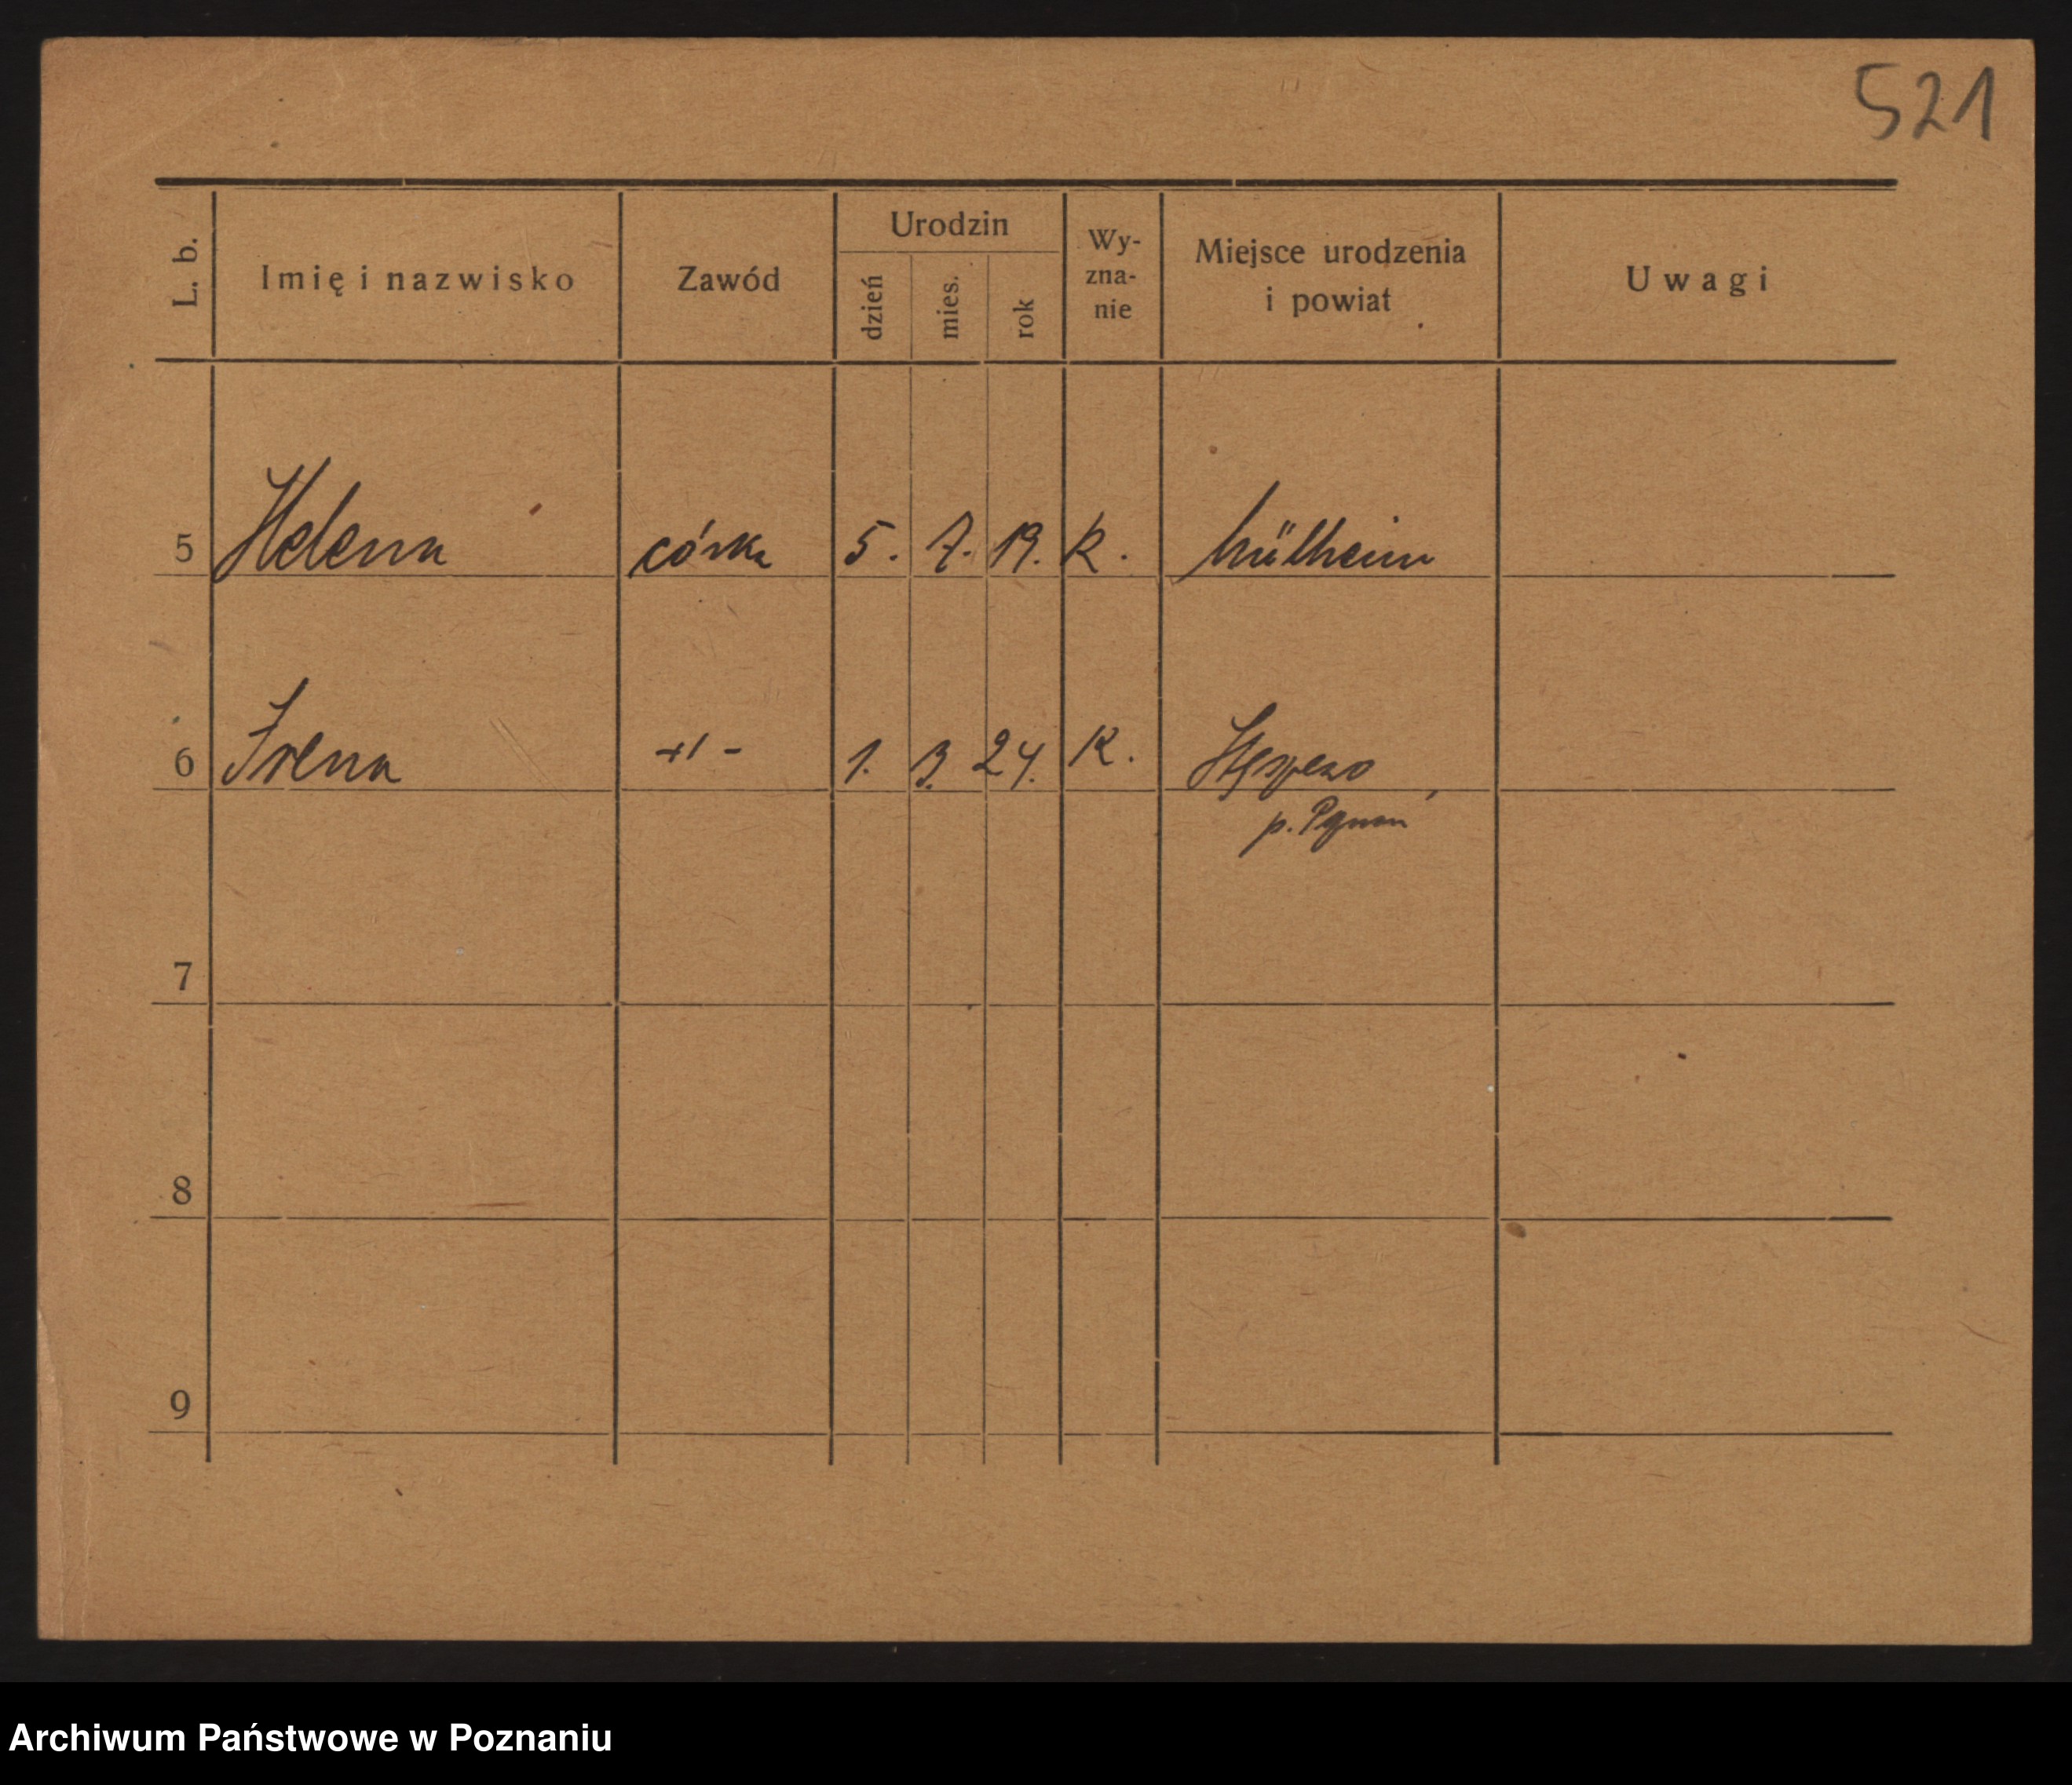 521
L. b. Imię i nazwisko Zawód Urodzin dzień mies. rok Wy-zna-nie Miejsce urodzenia i powiat Uwagi
5 Helena córka 5. 7. 19. k. Mülheim
6 Irena -"- 1. 3. 24. K.
p.
7
8
9
Archiwum Państwowe w Poznaniu